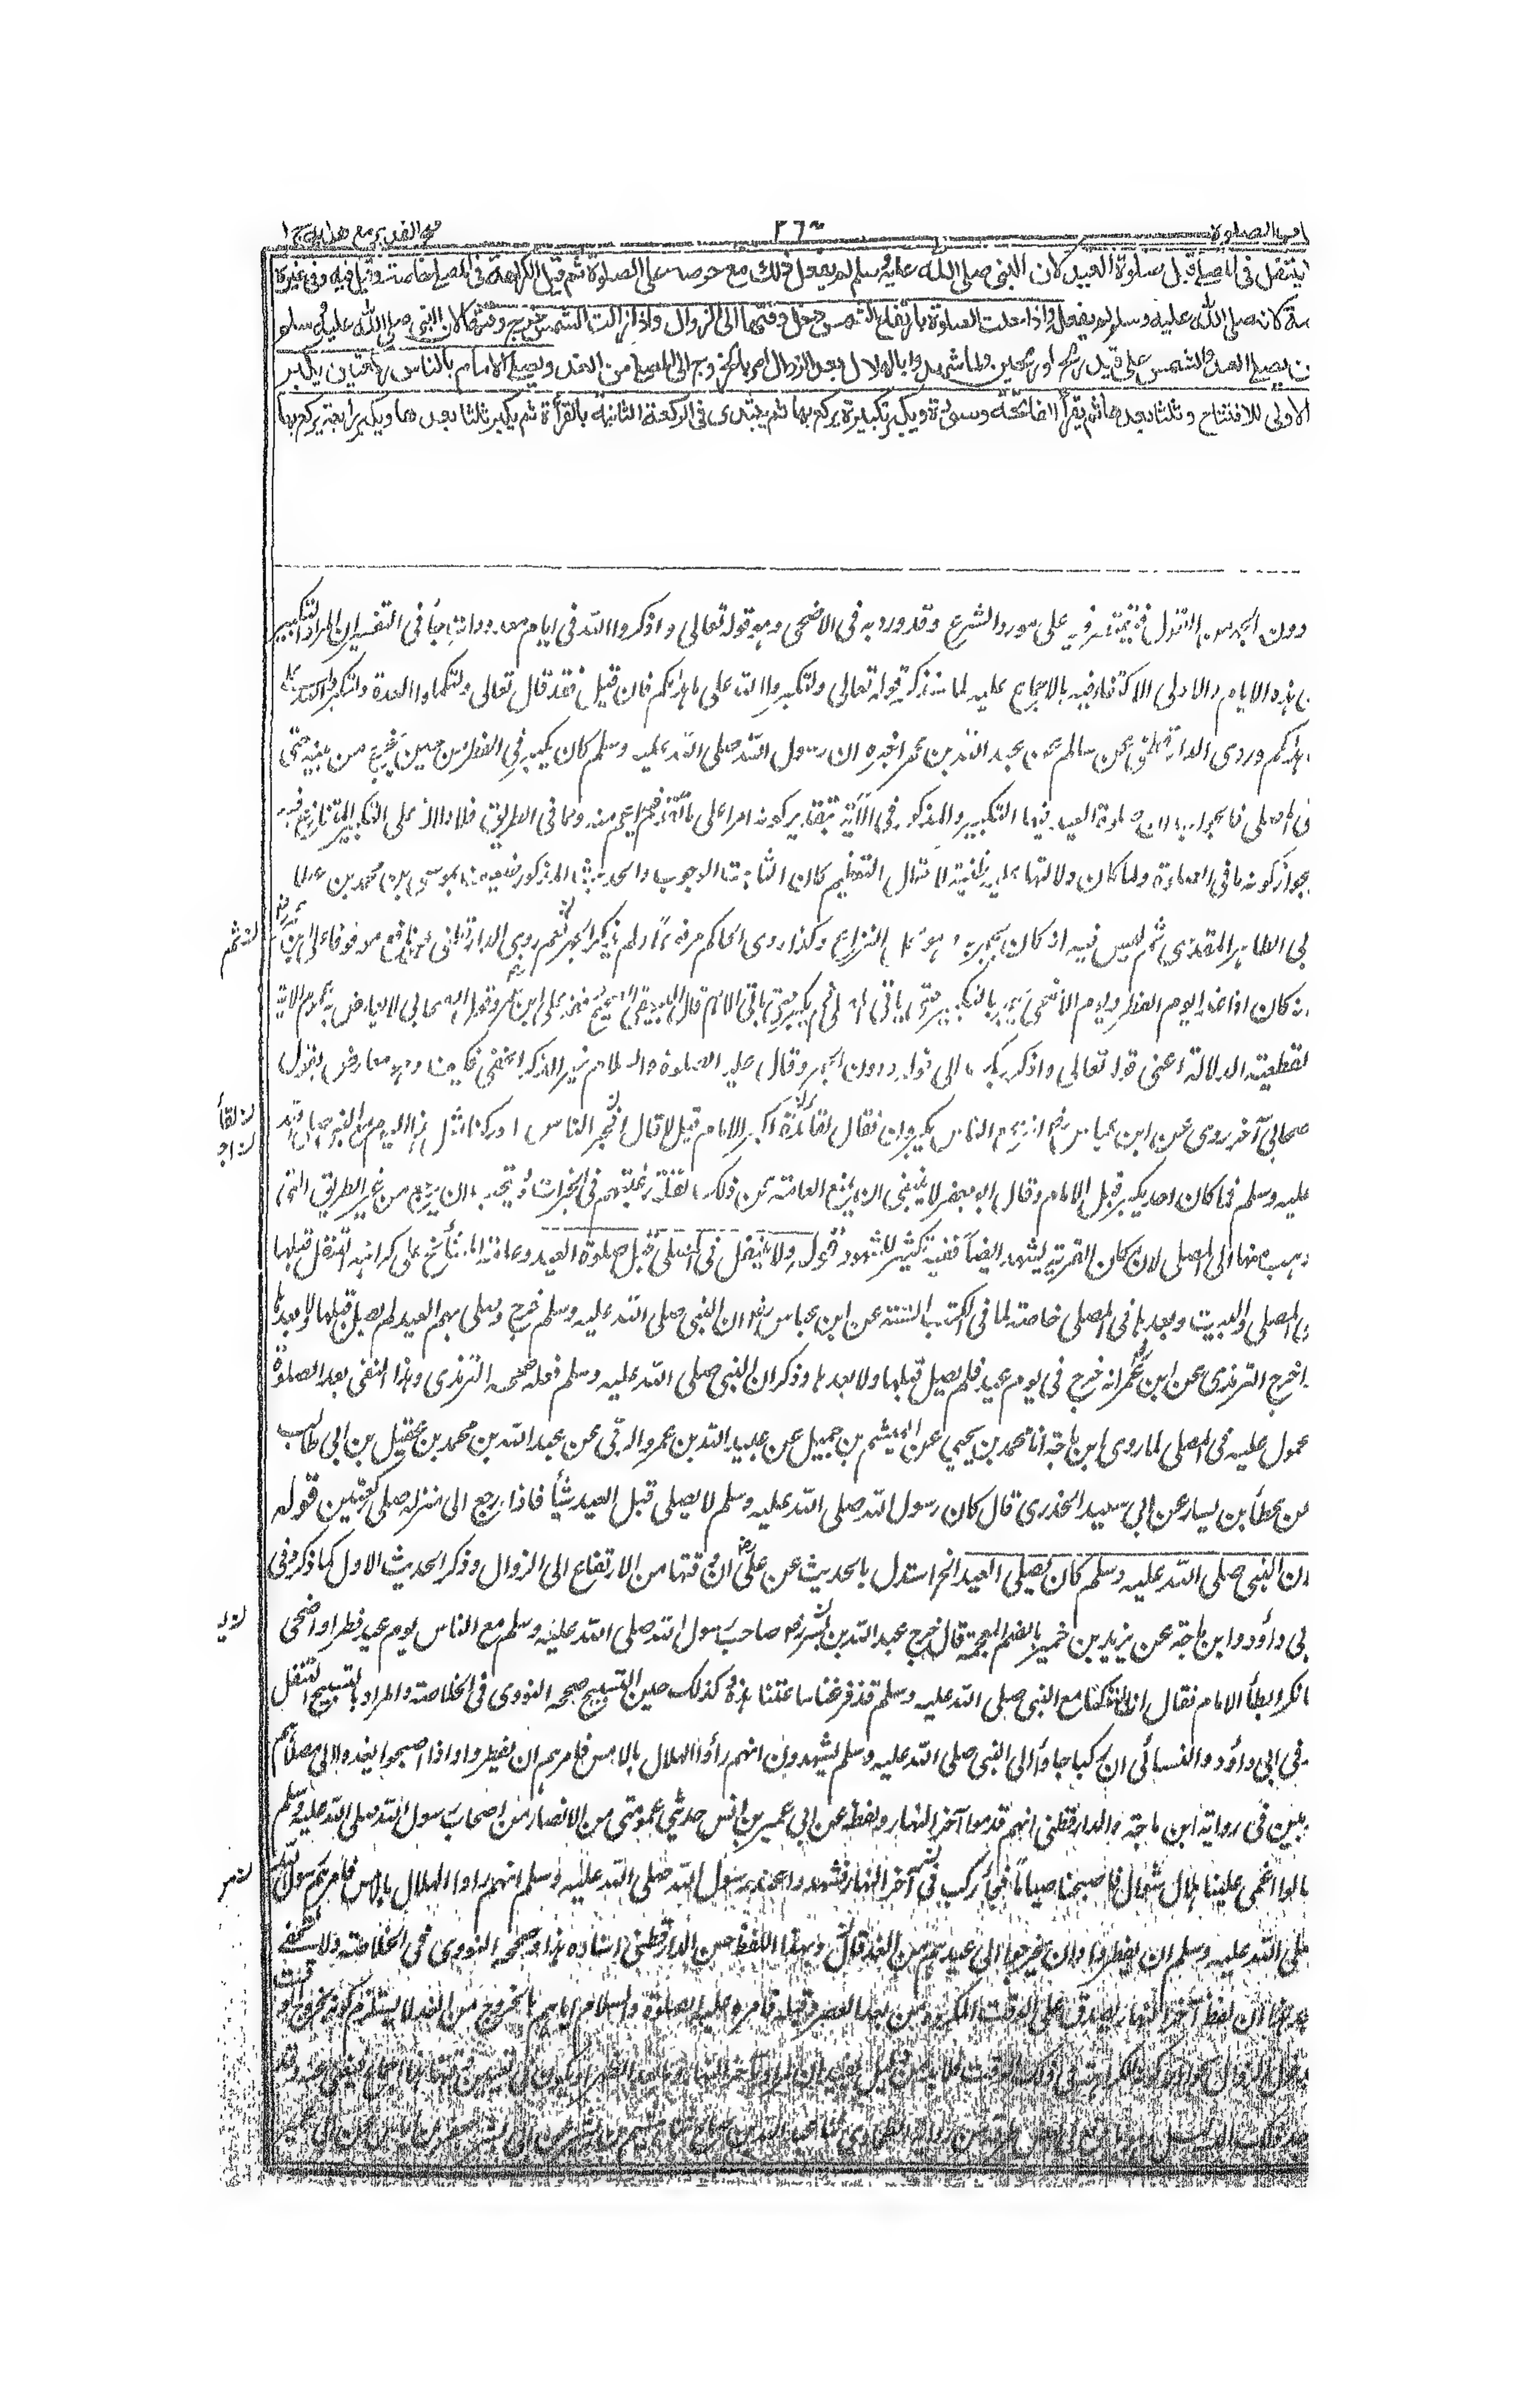 فتح القدير مع هداية ج ١
باب الصلوة
يتنفل في المصلى قبل صلوة العيد لان النبي صلى الله عليه وسلم لم يفعل ذلك مع حرصه على الصلوة ثم قيل الكراهة في المصلى خاصة وقيل فيه وفي غيره
لانه صلى الله عليه وسلم لم يفعل واذا حلت الصلوة بارتفاع الشمس دخل وقتها الى الزوال واذا زالت الشمس خرج وقتها لان النبي صلى الله عليه وسلم
يصلي العيد والشمس على قيد رمح او رمحين ولما شهدوا بالهلال بعد الزوال امر بالخروج الى المصلى من الغد ويصلي الامام بالناس ركعتين يكبر
الاولى للافتتاح وثلثا بعدها ثم يقرأ الفاتحة وسورة ويكبر تكبيرة يركع بها ثم يبتدى في الركعة الثانية بالقرأة ثم يكبر ثلثا بعدها ويكبر رابعة يركع بها
دون الجهر من القول فيقتصر فيه على مورد الشرع وقد ورد به في الاضحى وهو قوله تعالى واذكروا الله في ايام معدودات جاء في التفسير ان المراد التكبير
هذه الايام والاولى الاكتفاء فيه بالاجماع عليه لما نذكر في قوله تعالى ولتكبروا الله على ما هداكم فان قيل فقد قال تعالى ولتكملوا العدة ولتكبروا الله على
هداكم وروى الدارقطني عن سالم عن عبد الله بن عمر اخبره ان رسول الله صلى الله عليه وسلم كان يكبر في الفطر من حين يخرج من بيته حتى
المصلى فالجواب ان صلوة العيد فيها التكبير والمذكور في الآية بتقدير كونه امرا على ما تقدم فيه اعم منه وما في الطريق فلا دلالة على التكبير المتنازع فيه
لجواز كونه ما في الصلوة ولما كان دلالتها عليه ظنية لاحتمال التعظيم كان الثابت الوجوب والحديث المذكور ضعيف بموسى بن محمد بن عطا
ابي الطاهر المقدسي ثم ليس فيه انه كان يجهر به وهو محل النزاع وكذا روى الحاكم مرفوعا ولم يذكر الجهر نعم روى الدارقطني عن نافع موقوفا على ابن
انه كان اذا غدا يوم الفطر ويوم الاضحى يجهر بالتكبير حتى ياتي المصلى ثم يكبر حتى ياتي الامام قال البيهقي الصحيح وقفه على ابن عمر وقول الصحابي لا يعارض به عموم الآية
القطعية الدلالة اعني قوله تعالى واذكر ربك الى قوله ودون الجهر وقال عليه الصلوة والسلام خير الذكر الخفي فكيف وهو معارض بقول
صحابي آخر روى عن ابن عباس انه سمع الناس يكبرون فقال لقائده اكبر الامام قيل لا قال افجر الناس ادركنا مثل هذا اليوم مع النبي صلى الله
عليه وسلم فما كان احد يكبر قبل الامام وقال ابو جعفر لا ينبغي ان يمنع العامة عن ذلك لقلة رغبتهم في الخيرات ويستحب ان يرجع من غير الطريق التي
ذهب منها الى المصلى لان مكان القربة يشهد ايضا ففيه تكثير للشهود قوله ولا يتنفل في المصلى قبل صلوة العيد وعامة المشائخ على كراهة التنفل قبلها
في المصلى والبيت وبعدها في المصلى خاصة لما في الكتب الستة عن ابن عباس رض ان النبي صلى الله عليه وسلم خرج وصلى بهم العيد لم يصل قبلها ولا بعدها
اخرج الترمذي عن ابن عمر انه خرج في يوم عيد فلم يصل قبلها ولا بعدها وذكر ان النبي صلى الله عليه وسلم فعله صححه الترمذي وهذا النفي بعد الصلوة
محمول عليه في المصلى لما روى ابن ماجة انا محمد بن يحيى عن الهيثم بن جميل عن عبيد الله بن عمرو الرقي عن عبد الله بن محمد بن عقيل بن ابي طالب
عن عطأ بن يسار عن ابي سعيد الخدري قال كان رسول الله صلى الله عليه وسلم لا يصلي قبل العيد شيأ فاذا رجع الى منزله صلى ركعتين قوله
ان النبي صلى الله عليه وسلم كان يصلي العيد الخ استدل بالحديث عن على ان وقتها من الارتفاع الى الزوال وذكر الحديث الاول كما ذكر في
ابي داؤد وابن ماجة عن يزيد بن خمير بالضم المعجمة قال خرج عبد الله بن بسر رض صاحب رسول الله صلى الله عليه وسلم مع الناس يوم عيد فطر او اضحى
فانكر ابطأ الامام فقال انا كنا مع النبي صلى الله عليه وسلم قد فرغنا ساعتنا هذه وذلك حين التسبيح صححه النووي في الخلاصة والمراد بالتسبيح التنفل
وفي ابي داؤد والنسائي ان ركبا جاؤا الى النبي صلى الله عليه وسلم يشهدون انهم رأوا الهلال بالامس فامرهم ان يفطروا واذا اصبحوا يغدوا الى مصلاهم
وبين في رواية ابن ماجة والدارقطني انهم قدموا آخر النهار ولفظه عن ابي عمير بن انس حدثني عمومتي من الانصار من اصحاب رسول الله صلى الله عليه وسلم
قالوا اغمى علينا هلال شوال فاصبحنا صياما فجأ ركب في آخر النهار فشهدوا عند رسول الله صلى الله عليه وسلم انهم راوا الهلال بالامس فامرهم رسول الله
صلى الله عليه وسلم ان يفطروا وان يخرجوا الى عيدهم من الغد قال وبهذا اللفظ حسن الدارقطني اسناده وصححه النووي في الخلاصة ولا يخفى
ان لفظ آخر النهار يصدق على الوقت المكروه من بعد العصر وقبله فامره عليه الصلوة والسلام اياهم بالخروج من الغد لا يستلزم كونه لخروج